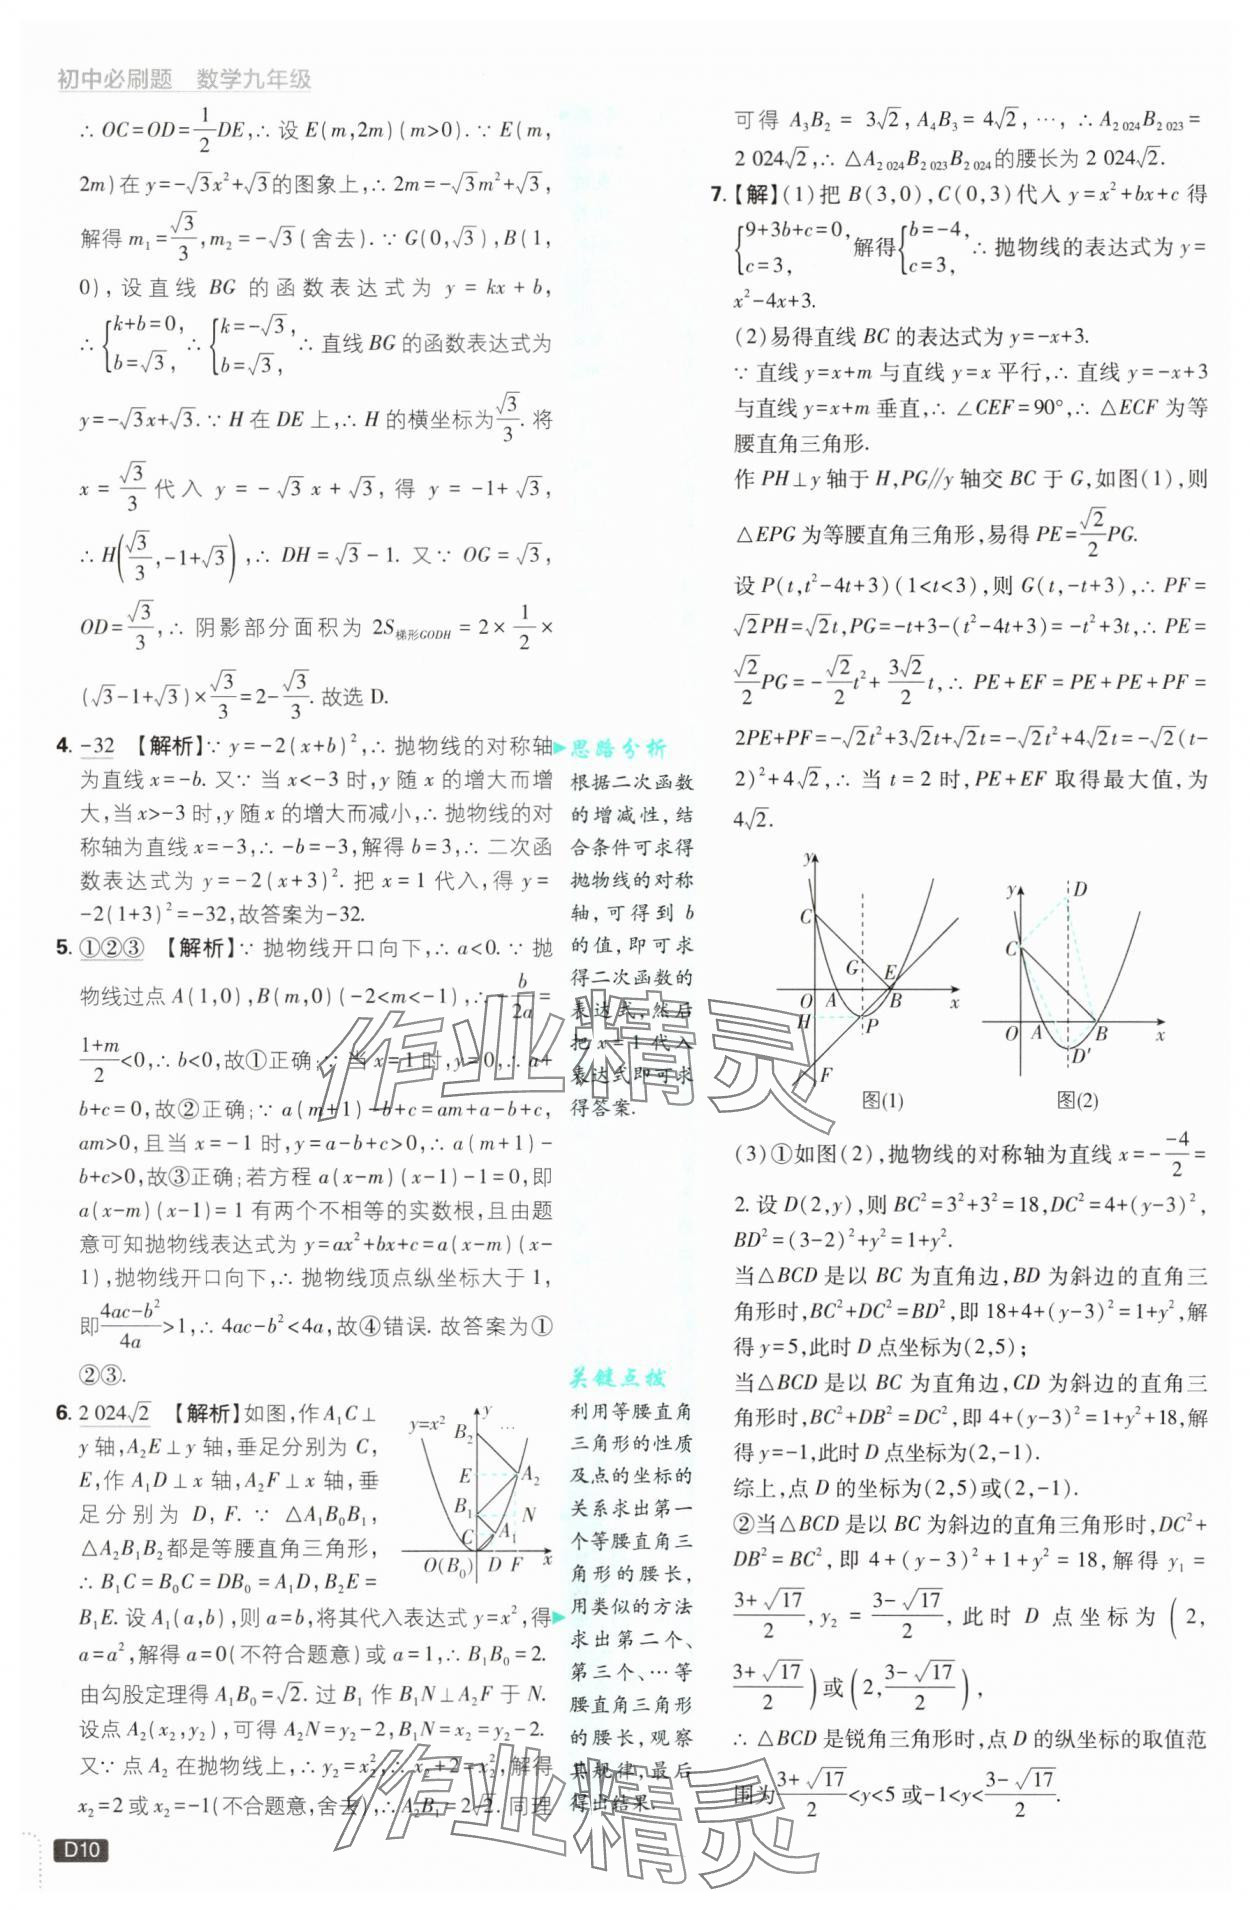 初中必刷题 数学九年级
∴ OC=OD=1/2DE,∴ 设 E(m,2m)(m>0).∵ E(m,
2m)在 y=-√3x²+√3的图象上,∴ 2m=-√3m²+√3,
解得 m₁=√3/3,m₂=-√3(舍去).∵ G(0,√3),B(1,
0),设直线 BG 的函数表达式为 y=kx+b,
∴ {k+b=0, b=√3, ∴ {k=-√3, b=√3, ∴ 直线 BG 的函数表达式为
y=-√3x+√3.∵ H 在 DE 上,∴ H 的横坐标为√3/3. 将
x=√3/3代入 y=-√3x+√3,得 y=-1+√3,
∴ H(√3/3,-1+√3),∴ DH=√3-1. 又∵ OG=√3,
OD=√3/3,∴ 阴影部分面积为 2S梯形GODH=2×1/2×
(√3-1+√3)×√3/3=2-√3/3. 故选 D.
4. -32 【解析】∵ y=-2(x+b)²,∴ 抛物线的对称轴
为直线 x=-b. 又∵ 当 x<-3 时,y 随 x 的增大而增
大,当 x>-3 时,y 随 x 的增大而减小,∴ 抛物线的对
称轴为直线 x=-3,∴ -b=-3,解得 b=3,∴ 二次函
数表达式为 y=-2(x+3)². 把 x=1 代入,得 y=
-2(1+3)²=-32,故答案为-32.
5. ①②③ 【解析】∵ 抛物线开口向下,∴ a<0. ∵ 抛
物线过点 A(1,0),B(m,0)(-2<m<-1),∴ -b/2a=
(1+m)/2<0,∴ b<0,故①正确;∵ 当 x=1 时,y=0,∴ a+
b+c=0,故②正确;∵ a(m+1)-b+c=am+a-b+c,
am>0,且当 x=-1 时,y=a-b+c>0,∴ a(m+1)-
b+c>0,故③正确;若方程 a(x-m)(x-1)-1=0,即
a(x-m)(x-1)=1 有两个不相等的实数根,且由题
意可知抛物线表达式为 y=ax²+bx+c=a(x-m)(x-
1),抛物线开口向下,∴ 抛物线顶点纵坐标大于 1,
即(4ac-b²)/4a>1,∴ 4ac-b²<4a,故④错误. 故答案为①
②③.
6. 2 024√2 【解析】如图,作 A₁C⊥
y 轴,A₂E⊥y 轴,垂足分别为 C,
E,作 A₁D⊥x 轴,A₂F⊥x 轴,垂
足分别为 D,F. ∵ △A₁B₀B₁,
△A₂B₁B₂都是等腰直角三角形,
∴ B₁C=B₀C=DB₀=A₁D,B₂E=
B₁E. 设 A₁(a,b),则 a=b,将其代入表达式 y=x²,得
a=a²,解得 a=0(不符合题意)或 a=1,∴ B₁B₀=2.
由勾股定理得 A₁B₀=√2. 过 B₁ 作 B₁N⊥A₂F 于 N.
设点 A₂(x₂,y₂),可得 A₂N=y₂-2,B₁N=x₂=y₂-2.
又∵ 点 A₂ 在抛物线上,∴ y₂=x₂²,∴ x₂+2=x₂²,解得
x₂=2 或 x₂=-1(不合题意,舍去),∴ A₂B₁=2√2. 同理
y=x² y …
B₂
E A₂
B₁ N
C A₁
O(B₀) D F x
思路分析
根据二次函数
的增减性,结
合条件可求得
抛物线的对称
轴,可得到 b
的值,即可求
得二次函数的
表达式,然后
把 x=1 代入
表达式即可求
得答案.
关键点拨
利用等腰直角
三角形的性质
及点的坐标的
关系求出第一
个等腰直角三
角形的腰长,
用类似的方法
求出第二个、
第三个、…等
腰直角三角形
的腰长,观察
其规律,最后
得出结果.
可得 A₃B₂=3√2,A₄B₃=4√2,…,∴ A₂₀₂₄B₂₀₂₃=
2 024√2,∴ △A₂₀₂₄B₂₀₂₃B₂₀₂₄的腰长为 2 024√2.
7.【解】(1)把 B(3,0),C(0,3)代入 y=x²+bx+c 得
{9+3b+c=0, c=3, 解得{b=-4, c=3, ∴ 抛物线的表达式为 y=
x²-4x+3.
(2)易得直线 BC 的表达式为 y=-x+3.
∵ 直线 y=x+m 与直线 y=x 平行,∴ 直线 y=-x+3
与直线 y=x+m 垂直,∴ ∠CEF=90°,∴ △ECF 为等
腰直角三角形.
作 PH⊥y 轴于 H,PG∥y 轴交 BC 于 G,如图(1),则
△EPG 为等腰直角三角形,易得 PE=√2/2PG.
设 P(t,t²-4t+3)(1<t<3),则 G(t,-t+3),∴ PF=
√2PH=√2t,PG=-t+3-(t²-4t+3)=-t²+3t,∴ PE=
√2/2PG=-√2/2t²+3√2/2t,∴ PE+EF=PE+PE+PF=
2PE+PF=-√2t²+3√2t+√2t=-√2t²+4√2t=-√2(t-
2)²+4√2,∴ 当 t=2 时,PE+EF 取得最大值,为
4√2.
y C G E O A B x H P F
图(1)
y D C O A B x D′
图(2)
(3)①如图(2),抛物线的对称轴为直线 x=--4/2=
2. 设 D(2,y),则 BC²=3²+3²=18,DC²=4+(y-3)²,
BD²=(3-2)²+y²=1+y².
当△BCD 是以 BC 为直角边,BD 为斜边的直角三
角形时,BC²+DC²=BD²,即 18+4+(y-3)²=1+y²,解
得 y=5,此时 D 点坐标为(2,5);
当△BCD 是以 BC 为直角边,CD 为斜边的直角三
角形时,BC²+DB²=DC²,即 4+(y-3)²=1+y²+18,解
得 y=-1,此时 D 点坐标为(2,-1).
综上,点 D 的坐标为(2,5)或(2,-1).
②当△BCD 是以 BC 为斜边的直角三角形时,DC²+
DB²=BC²,即 4+(y-3)²+1+y²=18,解得 y₁=
(3+√17)/2,y₂=(3-√17)/2,此时 D 点坐标为(2,
(3+√17)/2)或(2,(3-√17)/2),
∴ △BCD 是锐角三角形时,点 D 的纵坐标的取值范
围为(3+√17)/2<y<5 或-1<y<(3-√17)/2.
作业精灵
作业精灵
D10